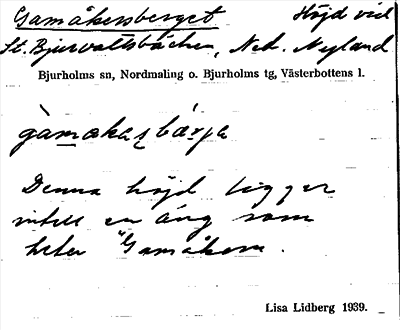 Gamåkersberget Höjd vid
St. Bjurvattsbäcken, Ned. Nyland
Bjurholms sn, Nordmaling o. Bjurholms tg, Västerbottens l.
Denna höjd ligger
intill en äng som
heter "Gamåkern.
Lisa Lidberg 1939.